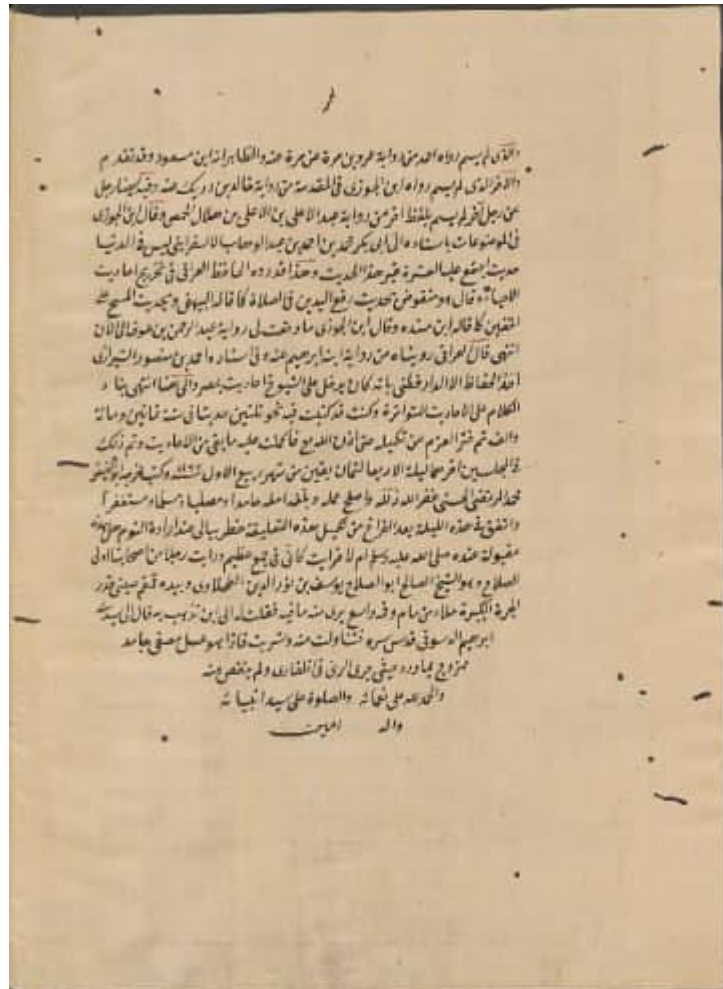 والذى لم يسم رواه احمد من رواية عمرو بن مرة عن مرة عنه والظاهر انه ابن مسعود وقد تقدم
والاخر الذى لم يسم رواه ابن الجوزى فى المقدمة من رواية خالد بن دريك عنه وقيل
عن رجل آخر لم يسم بلفظ اخر من رواية عبد الاعلى بن هلال الحمصى وقال ابن الجوزى
فى الموضوعات باسناده الى ابى بكر محمد بن احمد بن عبد الوهاب الاسفراينى ليس فى الدنيا
حديث اجتمع عليه العشرة غير هذا الحديث وهذا قد رده الحافظ العراقى فى تخريج احاديث
الاحياء قال ومنقوض بحديث رفع اليدين فى الصلاة كما قاله البيهقى وبحديث المسح على
الخفين كما قاله ابن منده وقال ابن الجوزى ما وقعت لى رواية عبد الرحمن بن عوف الى الآن
انتهى قال العراقى رويناه من رواية ابنه ابرهيم عنه وفى اسناده احمد بن منصور الشيرازى
احد الحفاظ الا ان الدارقطنى قال انه كان يدخل على الشيوخ احاديث بمصر والى هنا انتهى بنا
الكلام على الاحاديث المتواترة وكنت قد كتبت فيه نحو ثلثين حديثا فى سنة ثمانين ومائة
والف ثم فتر العزم من تكميله حتى اذن الله مع فاكملت عليه ما بقى من الاحاديث وتم ذلك
فى مجلسين آخرهما ليلة الاربعا لثمان بقين من شهر ربيع الاول سنة وكتب
محمد المرتضى الحسينى غفر الله زلله واصلح عمله وبلغه امله حامدا مصليا مسلما مستغفرا
واتفق فى هذه الليلة بعد الفراغ من تكميل هذه التعليقة خطر ببالى عند ارادة النوم هل هى
مقبولة عنده صلى الله عليه وسلم ام لا فرايت كانى فى جمع عظيم ورايت رجلا من اصحابنا اولى
الصلاح وهو الشيخ الصالح ابو الصلاح يوسف بن نور الدين الطحلاوى وبيده قمقم صينى قدر
الجرة الكبيرة ملاء من ماء وفه واسع يرى منه ما فيه فقلت له الى اين تذهب به قال الى سيدى
ابرهيم الدسوقى قدس سره فتناولت منه وشربت فاذا هو عسل مصفى جامد
ممزوج بماورد حتى جرى الرى فى اظفارى ولم ينقص منه
والحمد لله على نعمائه والصلوة على سيد انبيائه
واله امين